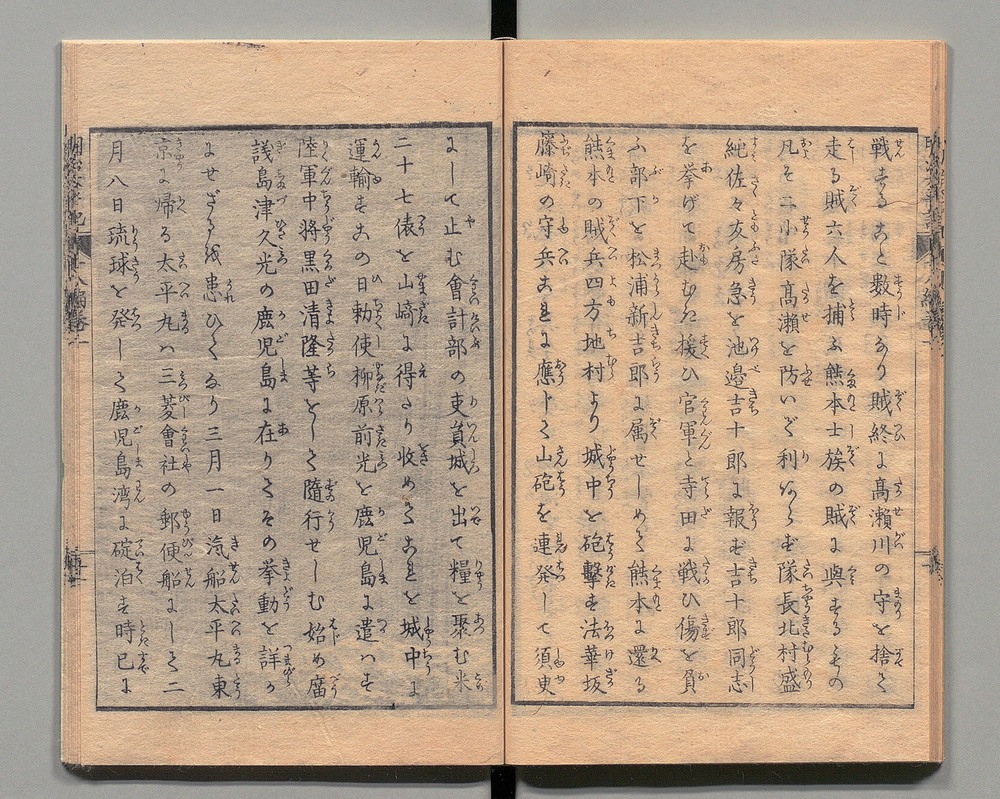 戦するこ{と}数時なり賊終に高瀬川の守を捨て
走る賊六人を捕ふ熊本士族の賊に與するもの
凡そ二小隊高瀬を防いで利あらず隊長北村盛
純佐々友房急を池邉吉十郎に報ず吉十郎同志
を挙げて赴むき援ひ官軍と寺田に戦ひ傷を負
ふ部下を松浦新吉郎に属せしめて熊本に還る
熊本の賊兵四方地村より城中を砲擊す法華坂
藤﨑の守兵これに應じて山砲を連発して須臾
にして止む會計部の吏員城を出て糧を聚む米
二十七俵を山﨑に得たり收めてこれを城中に
運輸すこの日勅使柳原前光を鹿児島に遣はす
陸軍中将黒田清隆等をして随行せしむ始め廟
議島津久光の鹿児島に在りてその挙動を詳か
にせざるを患ひてなり三月一日滊船太平丸東
京に帰る太平丸ハ三菱會社の郵便船にして二
月八日琉球を発して鹿児島湾に碇泊す時已に